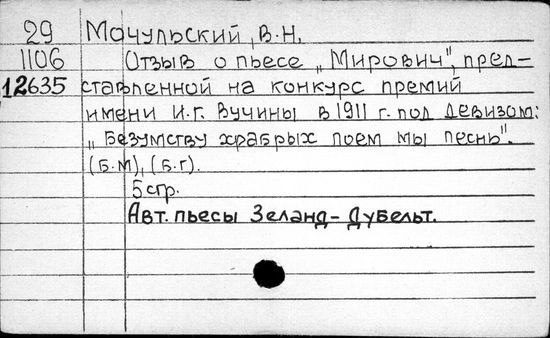 29 Мочульский, В.Н.
1106 Отзыв о пьесе „Мирович", пред-
12635 ставленной на конкурс премий
имени И.Г. Вучины в 1911 г. под девизом:
„Безумству храбрых поем мы песнь".
(Б.М), (Б.г).
5 стр.
Авт. пьесы Зеланд-Дубельт.